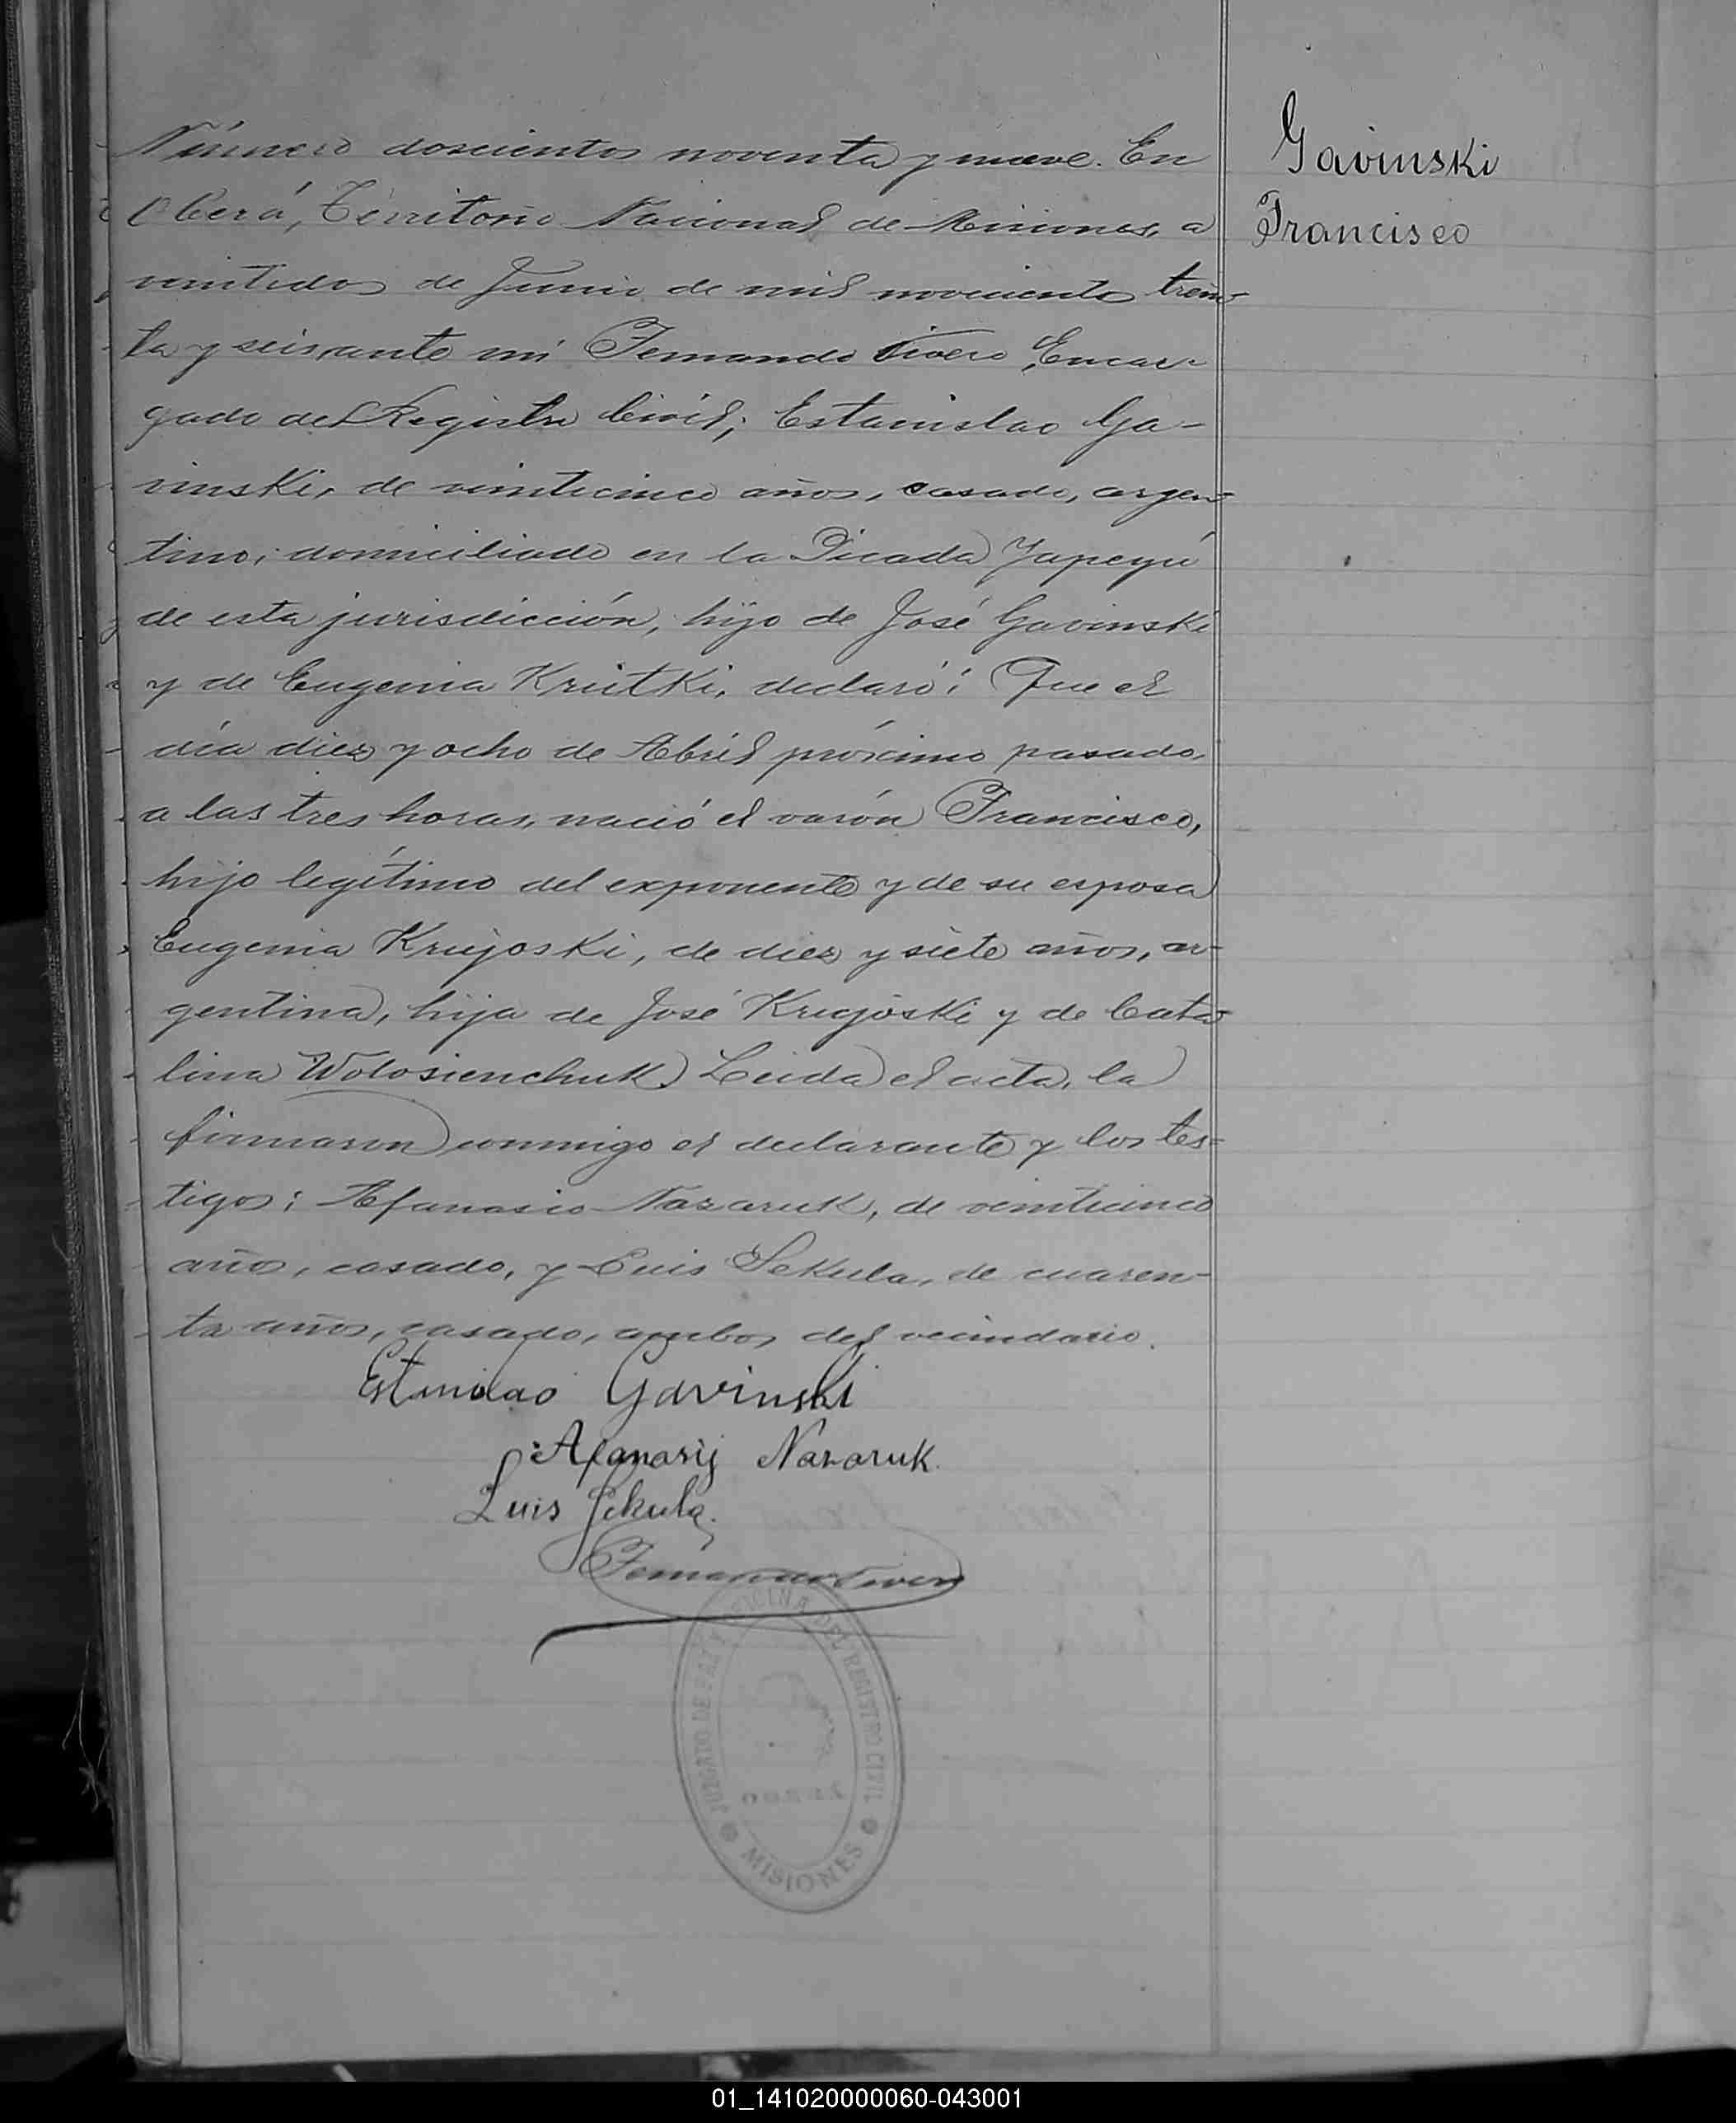 Número doscientos noventa y nueve. En
Oberá, Territorio Nacional de Misiones, a
veintidos de Junio de mil novecientos trein-
ta y seis, ante mi Fernando Tivero, Encar-
gado del Registro Civil; Estanislao Ga-
vinski, de veinticinco años, casado, argen-
tino, domiciliado en la Picada Yapeyú
de esta jurisdicción, hijo de José Gavinski
y de Eugenia Krutki, declaró: Que el
día diez y ocho de Abril próximo pasado,
a las tres horas, nació el varón Francisco,
hijo legítimo del exponente y de su esposa
Eugenia Krujoski, de diez y siete años, ar-
gentina, hija de José Krujoski y de Cata-
lina Wolosienchuk. Leida el acta, la
firmaron conmigo el declarante y los tes-
tigos: Afanasio Nazaruk, de veinticinco
años, casado, y Luis Sekula, de cuaren-
ta años, casado, ambos del vecindario.
Estanislao Gavinski
Afanasij Nazaruk.
Luis Sekula.
Fernando Tivero
JUZGADO DE PAZ Y OFICINA DEL REGISTRO CIVIL
MISIONES
Gavinski
Francisco
01_141020000060-043001